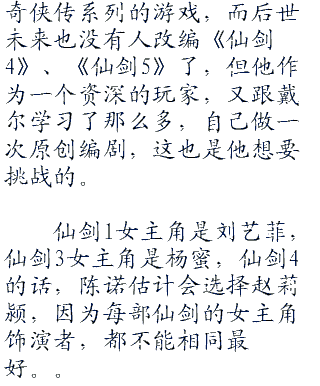 奇侠传系列的游戏，而后世
未来也没有人改编《仙剑
4》、《仙剑5》了，但他作
为一个资深的玩家，又跟戴
尔学习了那么多，自己做一
次原创编剧，这也是他想要
挑战的。
仙剑1女主角是刘艺菲，
仙剑3女主角是杨蜜，仙剑4
的话，陈诺估计会选择赵莉
颍，因为每部仙剑的女主角
饰演者，都不能相同最
好。。